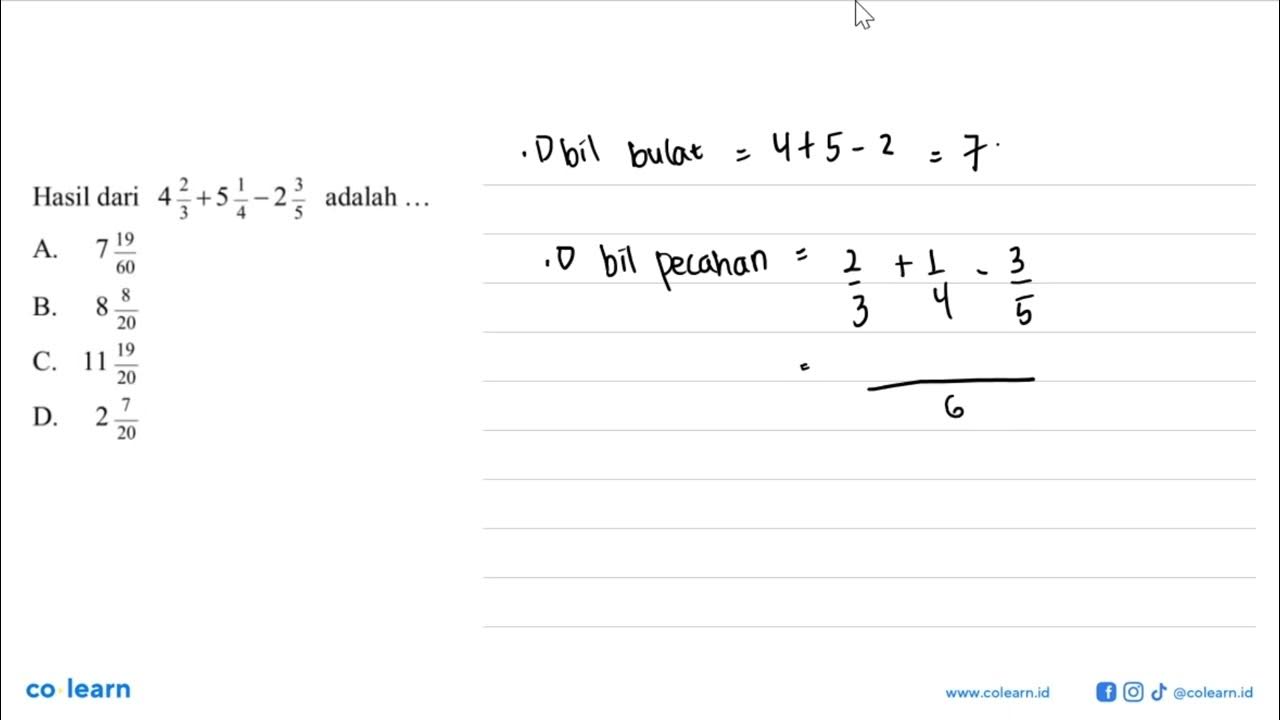 Hasil dari 4 2/3 + 5 1/4 − 2 3/5 adalah …
A. 7 19/60
B. 8 8/20
C. 11 19/20
D. 2 7/20
.D bil bulat = 4 + 5 - 2 = 7.
.D bil pecahan = 2/3 + 1/4 - 3/5
= /6
co learn
www.colearn.id @colearn.id